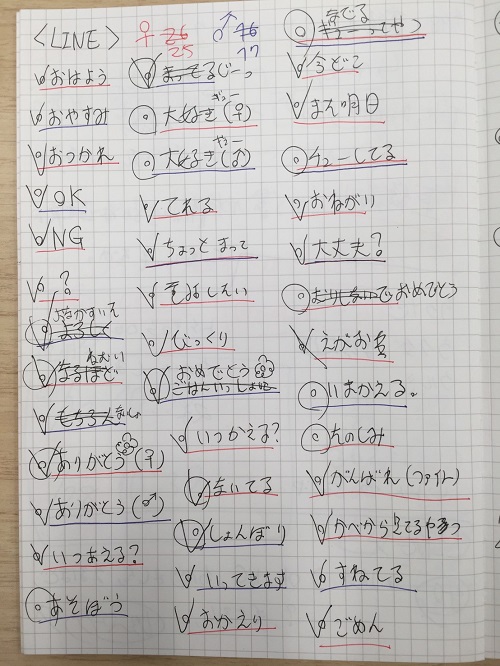 <LINE>
♀ 26 ♂ 16
25 17
おはよう
おやすみ
おつかれ
OK
NG
?
よろしく
ねむい
なるほど
もちろん
ありがとう(♀)
ありがとう(♂)
いつあえる?
あそぼう
じーっ
ぎゅー
大好き(♀)
大好き(♂)
てれる
ちょっとまって
電話したい
びっくり
おめでとう
ごはんいっしょに
いつかえる?
ないてる
しょんぼり
いってきます
おかえり
今どこ
また明日
チューしてる
おねがい
大丈夫?
おめでとう
えがお
いまかえる。
たのしみ
がんばれ(ファイト)
かべから見てるやつ
すねてる
ごめん